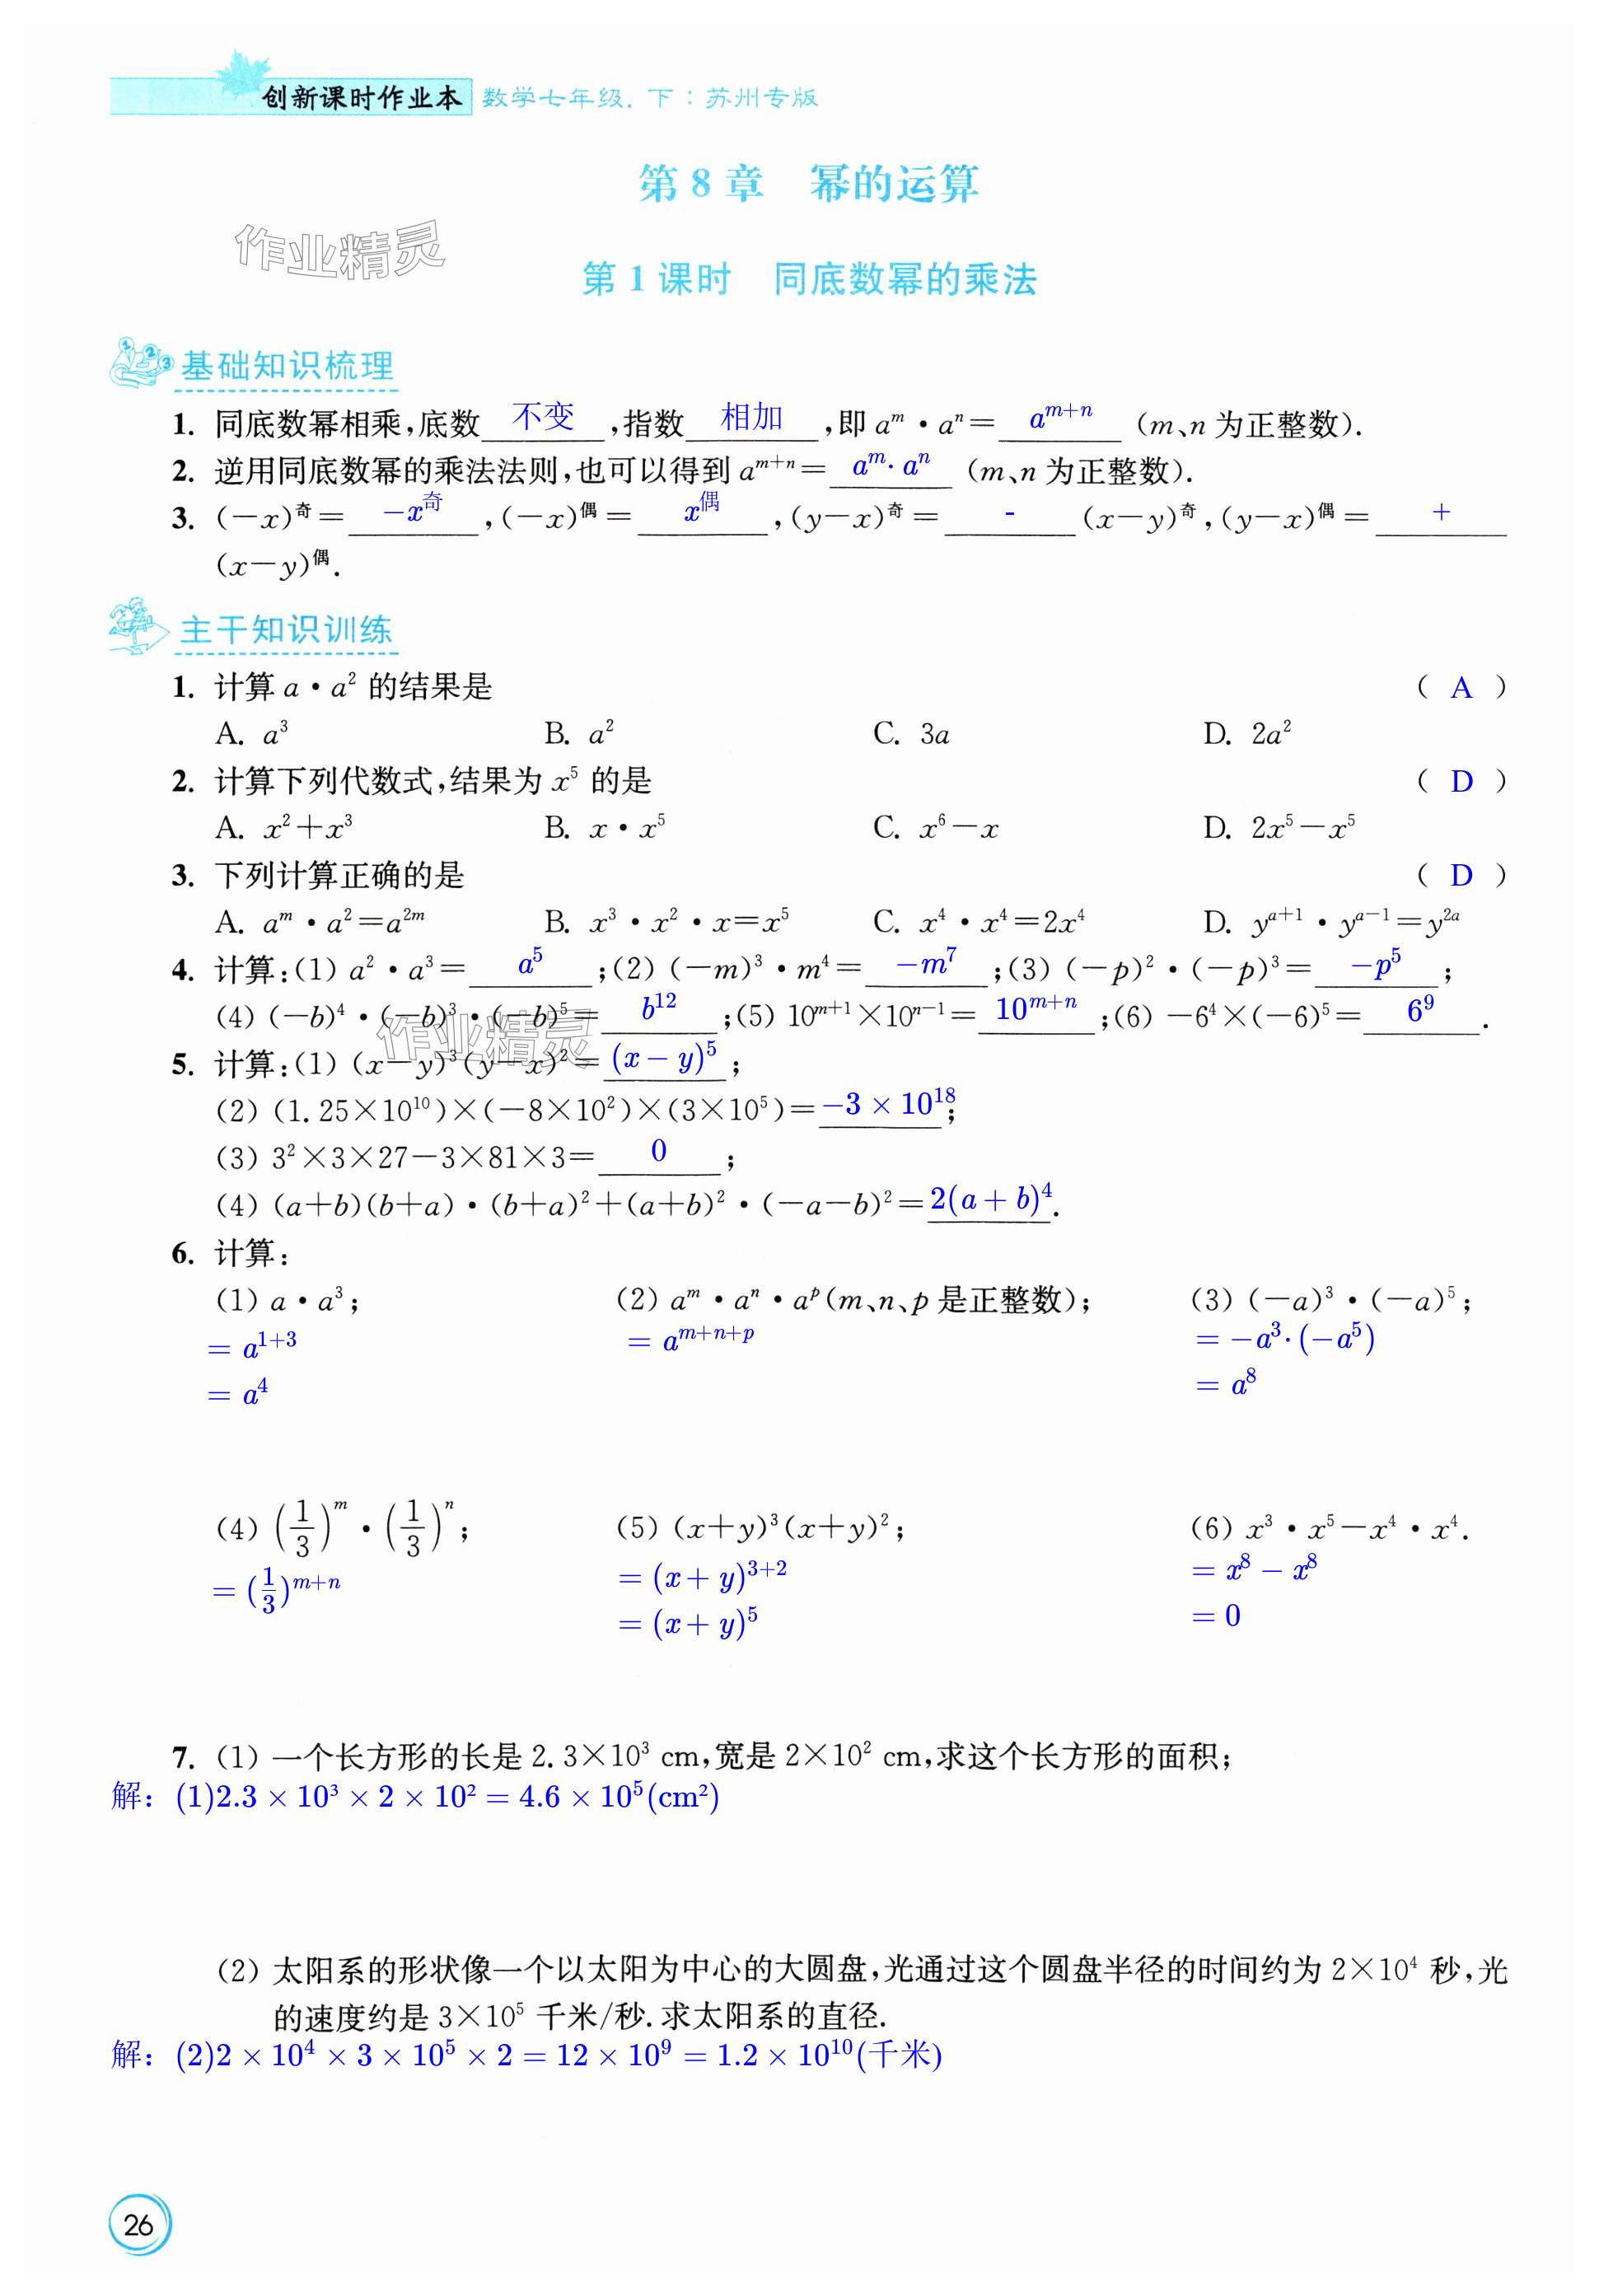 创新课时作业本 数学七年级. 下：苏州专版
第 8 章 幂的运算
作业精灵
第 1 课时 同底数幂的乘法
基础知识梳理
1. 同底数幂相乘,底数 不变 ,指数 相加 ,即 aᵐ・aⁿ= aᵐ⁺ⁿ (m、n 为正整数).
2. 逆用同底数幂的乘法法则,也可以得到 aᵐ⁺ⁿ= aᵐ·aⁿ (m、n 为正整数).
3. (−x)^奇= −x^奇 ,(−x)^偶= x^偶 ,(y−x)^奇= - (x−y)^奇,(y−x)^偶= +
(x−y)^偶.
主干知识训练
1. 计算 a・a² 的结果是 ( A )
A. a³ B. a² C. 3a D. 2a²
2. 计算下列代数式,结果为 x⁵ 的是 ( D )
A. x²+x³ B. x・x⁵ C. x⁶−x D. 2x⁵−x⁵
3. 下列计算正确的是 ( D )
A. aᵐ・a²=a²ᵐ B. x³・x²・x=x⁵ C. x⁴・x⁴=2x⁴ D. y^(a+1)・y^(a−1)=y^(2a)
4. 计算:(1) a²・a³= a⁵ ;(2) (−m)³・m⁴= −m⁷ ;(3) (−p)²・(−p)³= −p⁵ ;
(4) (−b)⁴・(−b)³・(−b)⁵= b¹² ;(5) 10ᵐ⁺¹×10ⁿ⁻¹= 10ᵐ⁺ⁿ ;(6) −6⁴×(−6)⁵= 6⁹ .
作业精灵
5. 计算:(1) (x−y)³(y−x)²= (x−y)⁵ ;
(2) (1.25×10¹⁰)×(−8×10²)×(3×10⁵)= −3×10¹⁸ ;
(3) 3²×3×27−3×81×3= 0 ;
(4) (a+b)(b+a)・(b+a)²+(a+b)²・(−a−b)²= 2(a+b)⁴ .
6. 计算:
(1) a・a³; (2) aᵐ・aⁿ・aᵖ(m、n、p 是正整数); (3) (−a)³・(−a)⁵;
= a¹⁺³ = aᵐ⁺ⁿ⁺ᵖ = −a³·(−a⁵)
= a⁴ = a⁸
(4) (1/3)ᵐ・(1/3)ⁿ; (5) (x+y)³(x+y)²; (6) x³・x⁵−x⁴・x⁴.
= (1/3)ᵐ⁺ⁿ = (x+y)³⁺² = x⁸−x⁸
= (x+y)⁵ = 0
7. (1) 一个长方形的长是 2.3×10³ cm,宽是 2×10² cm,求这个长方形的面积;
解：(1)2.3×10³×2×10²=4.6×10⁵(cm²)
(2) 太阳系的形状像一个以太阳为中心的大圆盘,光通过这个圆盘半径的时间约为 2×10⁴ 秒,光
的速度约是 3×10⁵ 千米/秒.求太阳系的直径.
解：(2)2×10⁴×3×10⁵×2=12×10⁹=1.2×10¹⁰(千米)
26